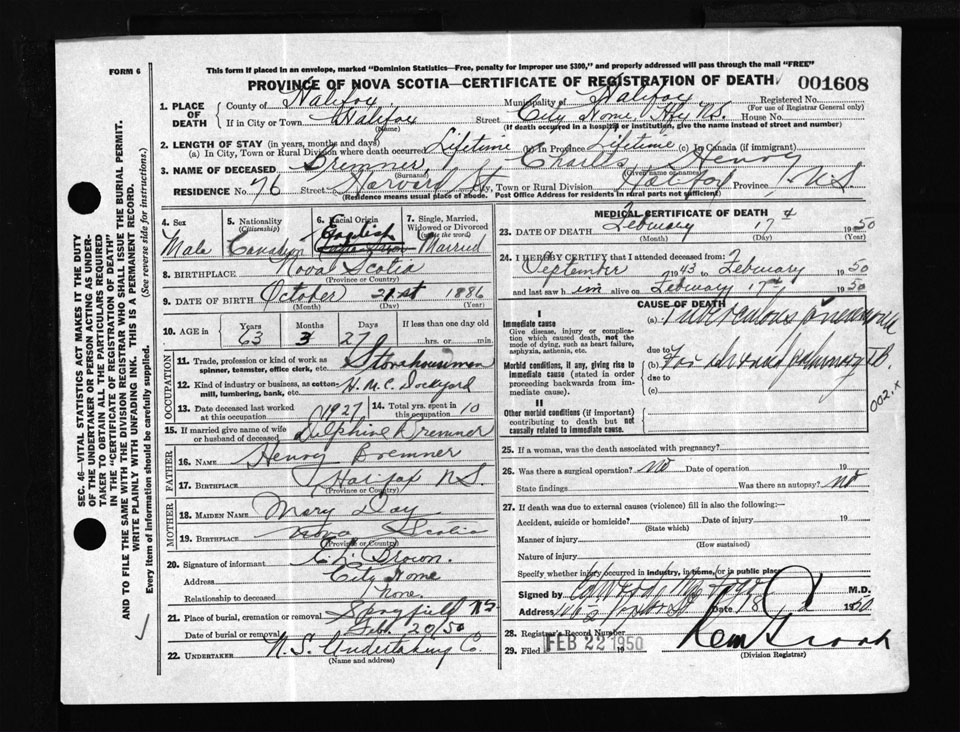 FORM 6
This form if placed in an envelope, marked "Dominion Statistics—Free, penalty for improper use $300," and properly addressed will pass through the mail "FREE"
PROVINCE OF NOVA SCOTIA—CERTIFICATE OF REGISTRATION OF DEATH
001608
1. PLACE OF DEATH
County of Halifax Municipality of Halifax Registered No.
(For use of Registrar General only)
If in City or Town Halifax Street City Home, Hfx N.S. House No.
(Name) (If death occurred in a hospital or institution, give the name instead of street and number)
2. LENGTH OF STAY (in years, months and days)
(a) In City, Town or Rural Division where death occurred Lifetime (b) In Province Lifetime (c) In Canada (if immigrant)
3. NAME OF DECEASED Bremner, Charles Henry
(Surname) (Given name or names)
RESIDENCE No. 76 Street Harvard St. City, Town or Rural Division Halifax Province N.S.
(Residence means usual place of abode. Post Office Address for residents in rural parts not sufficient)
4. Sex
Male
5. Nationality
(Citizenship)
Canadian
6. Racial Origin
English
7. Single, Married, Widowed or Divorced
(write the word)
Married
8. BIRTHPLACE Nova Scotia
(Province or Country)
9. DATE OF BIRTH October 21st 1886
(Month) (Day) (Year)
10. AGE in Years Months Days If less than one day old
63 3 27 hrs. or min.
OCCUPATION
11. Trade, profession or kind of work as spinner, teamster, office clerk, etc. Storehouseman
12. Kind of industry or business, as cotton-mill, lumbering, bank, etc. H.M.C. Dockyard
13. Date deceased last worked at this occupation 1927
14. Total yrs. spent in this occupation 10
15. If married give name of wife or husband of deceased Delphine Bremner
FATHER
16. NAME Henry Bremner
17. BIRTHPLACE Halifax N.S.
(Province or Country)
MOTHER
18. MAIDEN NAME Mary Day
19. BIRTHPLACE Nova Scotia
(Province or Country)
20. Signature of informant E. L. Brown.
Address City Home
Relationship to deceased None.
21. Place of burial, cremation or removal N.S.
Date of burial or removal Feb. 20/50
22. UNDERTAKER N.S. Undertaking Co.
(Name and address)
MEDICAL CERTIFICATE OF DEATH
23. DATE OF DEATH February 17th 1950
(Month) (Day) (Year)
24. I HEREBY CERTIFY that I attended deceased from:
September 1943 to February 1950
and last saw him alive on February 17th 1950
CAUSE OF DEATH
I
Immediate cause
Give disease, injury or complication which caused death, not the mode of dying, such as heart failure, asphyxia, asthenia, etc.
(a) Tuberculous pneumonia
due to
Morbid conditions, if any, giving rise to immediate cause (stated in order proceeding backwards from immediate cause).
(b) pulmonary TB.
due to
(c)
002.x
II
Other morbid conditions (if important) contributing to death but not causally related to immediate cause.
25. If a woman, was the death associated with pregnancy?
26. Was there a surgical operation? No Date of operation 19
State findings Was there an autopsy? No
27. If death was due to external causes (violence) fill in also the following:
Accident, suicide or homicide? Date of injury 19
(State which)
Manner of injury
(How sustained)
Nature of injury
Specify whether injury occurred in industry, in home, or in public place
Signed by M.D.
Address Date 18 1950
28. Registrar's Record Number
29. Filed FEB 22 1950
(Division Registrar)
SEC. 46—VITAL STATISTICS ACT MAKES IT THE DUTY OF THE UNDERTAKER OR PERSON ACTING AS UNDERTAKER TO OBTAIN ALL THE PARTICULARS REQUIRED IN THE "CERTIFICATE OF REGISTRATION OF DEATH" AND TO FILE THE SAME WITH THE DIVISION REGISTRAR WHO SHALL ISSUE THE BURIAL PERMIT.
WRITE PLAINLY WITH UNFADING INK. THIS IS A PERMANENT RECORD.
Every item of information should be carefully supplied. (See reverse side for instructions.)